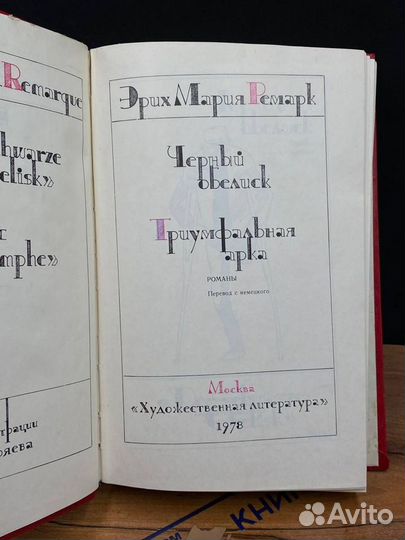 Remarque
hwarze
elisk»
mphe»
трации
ряева
Эрих Мария Ремарк
Черный
обелиск
Триумфальная
арка
РОМАНЫ
Перевод с немецкого
Москва
«Художественная литература»
1978
КНИ
Avito